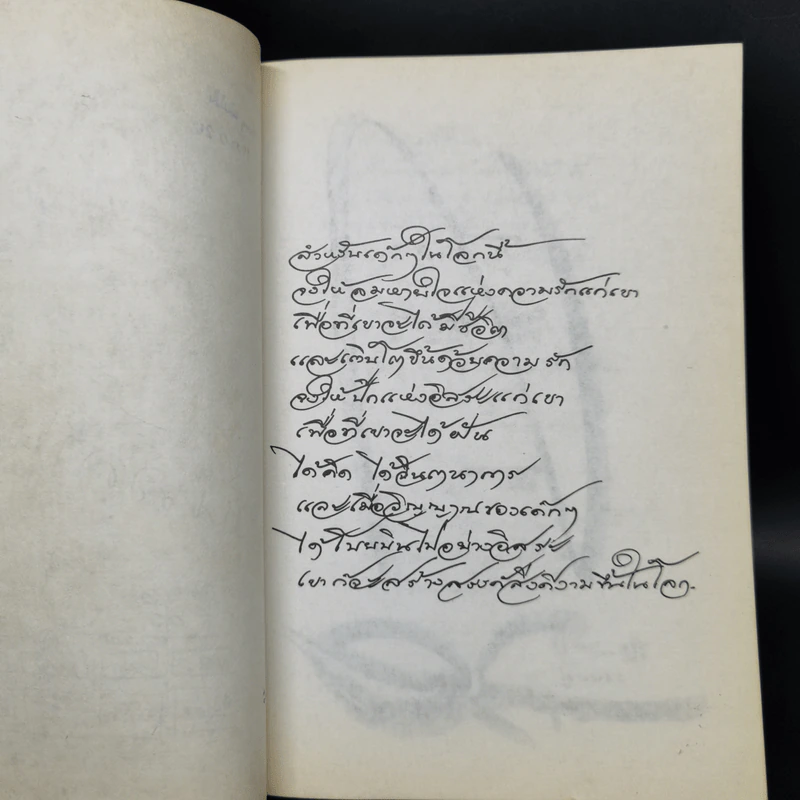 สำหรับเด็กๆในโลกนี้
จงให้ลมหายใจแห่งความรักแก่เขา
เพื่อที่เขาจะได้มีชีวิต
และเติบโตขึ้นด้วยความรัก
จงให้ปีกแห่งอิสระแก่เขา
เพื่อที่เขาจะได้ฝัน
ได้คิด ได้จินตนาการ
และเมื่อวิญญาณของเด็กๆ
ได้โบยบินไปอย่างอิสระ
เขาก็จะสร้างสรรค์สิ่งดีงามขึ้นในโลก.